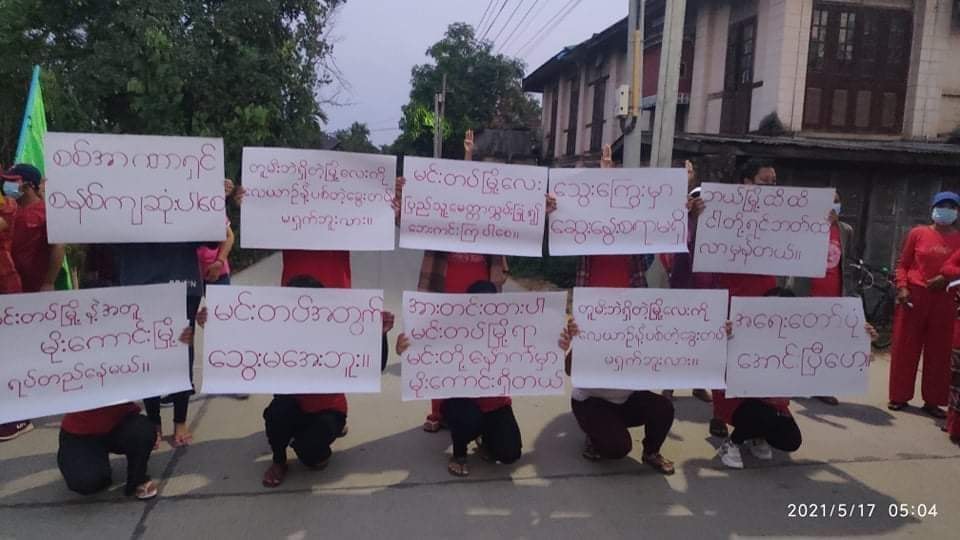 စစ်အာဏာရှင်
စနစ်ကျဆုံးပါစေ
တူမီးဘဲရှိတဲ့မြို့လေးကို
လေယာဉ်နဲ့ပစ်တဲ့ခွေးတပ်
မရှက်ဘူးလား။
မင်းတပ်မြို့လေး
ပြည်သူမေတ္တာလွှမ်းခြုံ၍
ဘေးကင်းကြပါစေ။
သွေးကြွေးမှာ
ဆွေးနွေးစရာမရှိ
ဘယ်မြို့ထိထိ
ငါတို့ရင်ဘတ်ထဲ
လာမှန်တယ်။
မင်းတပ်မြို့နဲ့အတူ
မိုးကောင်းမြို့
ရပ်တည်နေမယ်။
မင်းတပ်အတွက်
သွေးမအေးဘူး။
အားတင်းထားပါ
မင်းတပ်မြို့ရာ
မင်းတို့နောက်မှာ
မိုးကောင်းရှိတယ်
တူမီးဘဲရှိတဲ့မြို့လေးကို
လေယာဉ်နဲ့ပစ်တဲ့ခွေးတပ်
မရှက်ဘူးလား။
အရေးတော်ပုံ
အောင်ပြီဟေ့။
2021/5/17 05:04